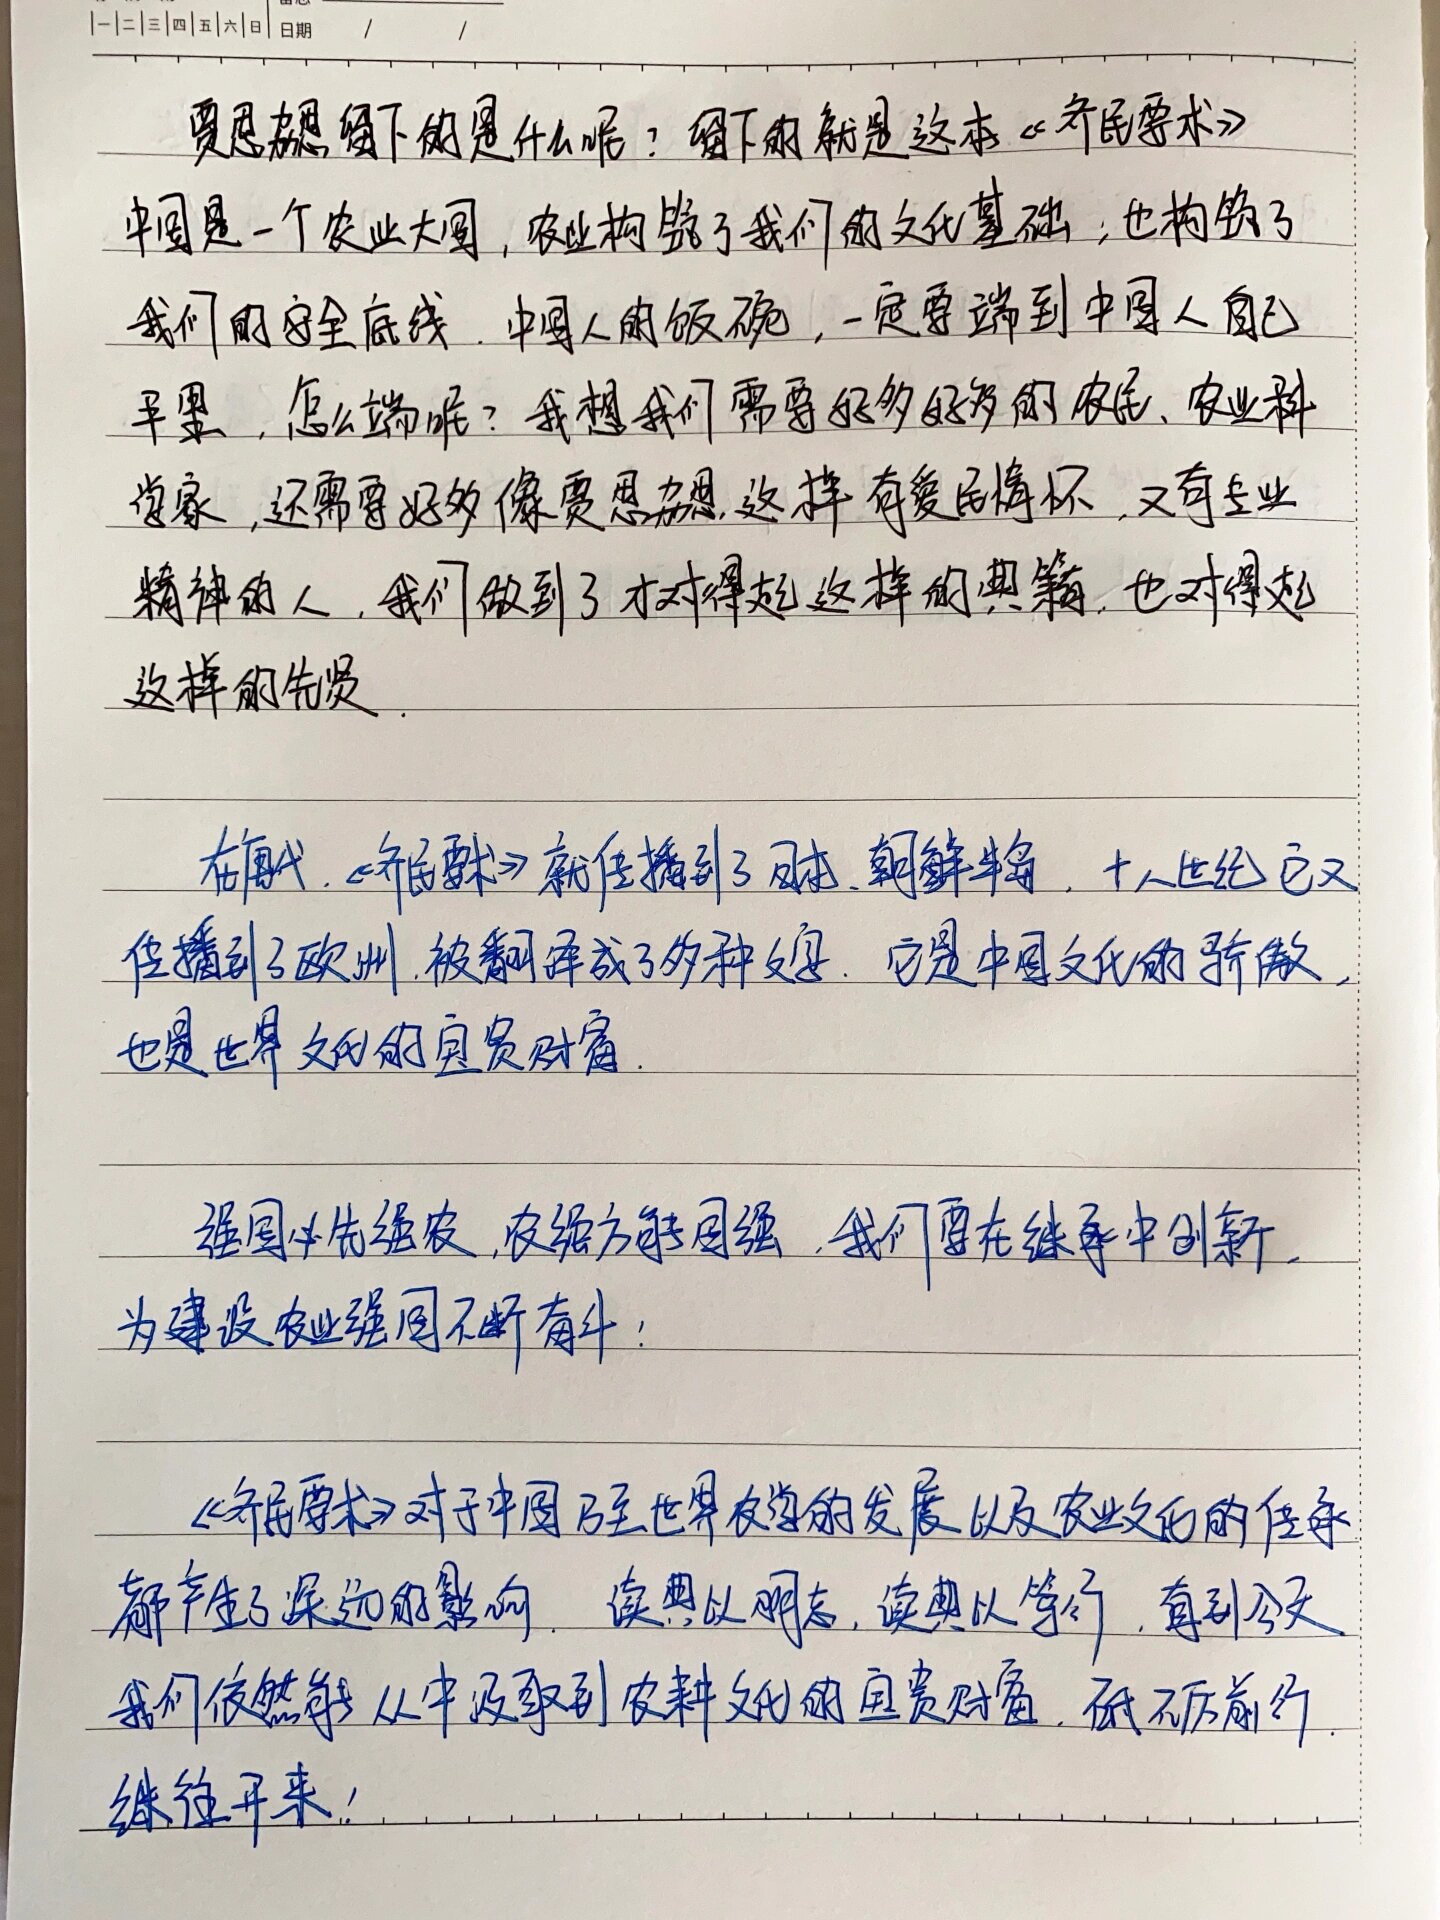 一 二 三 四 五 六 日 日期 / /
贾思勰留下的是什么呢？留下的就是这本《齐民要术》
中国是一个农业大国，农业构筑了我们的文化基础，也构筑了
我们的安全底线．中国人的饭碗，一定要端到中国人自己
手里，怎么端呢？我想我们需要好多好多的农民、农业科
学家，还需要好多像贾思勰，这样有爱民情怀，又有专业
精神的人，我们做到了才对得起这样的典籍，也对得起
这样的先贤．
在唐代，《齐民要术》就传播到了日本、朝鲜半岛，十八世纪它又
传播到了欧洲，被翻译成了多种文字．它是中国文化的骄傲，
也是世界文化的宝贵财富．
强国必先强农，农强方能国强，我们要在继承中创新，
为建设农业强国不断奋斗！
《齐民要术》对于中国乃至世界农学的发展以及农业文化的传承
都产生了深远的影响．读典以明志，读典以笃行，直到今天
我们依然能从中汲取到农耕文化的宝贵财富，砥砺前行，
继往开来！